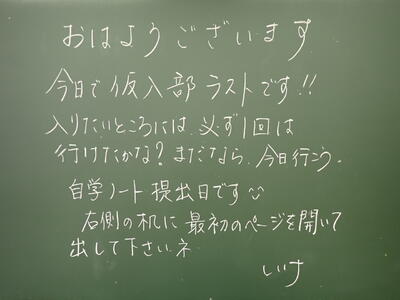 おはようございます
今日で仮入部ラストです!!
入りたいところには、必ず1回は
行けたかな？まだなら、今日行こう。
自学ノート提出日です
右側の机に最初のページを開いて
出して下さいネ